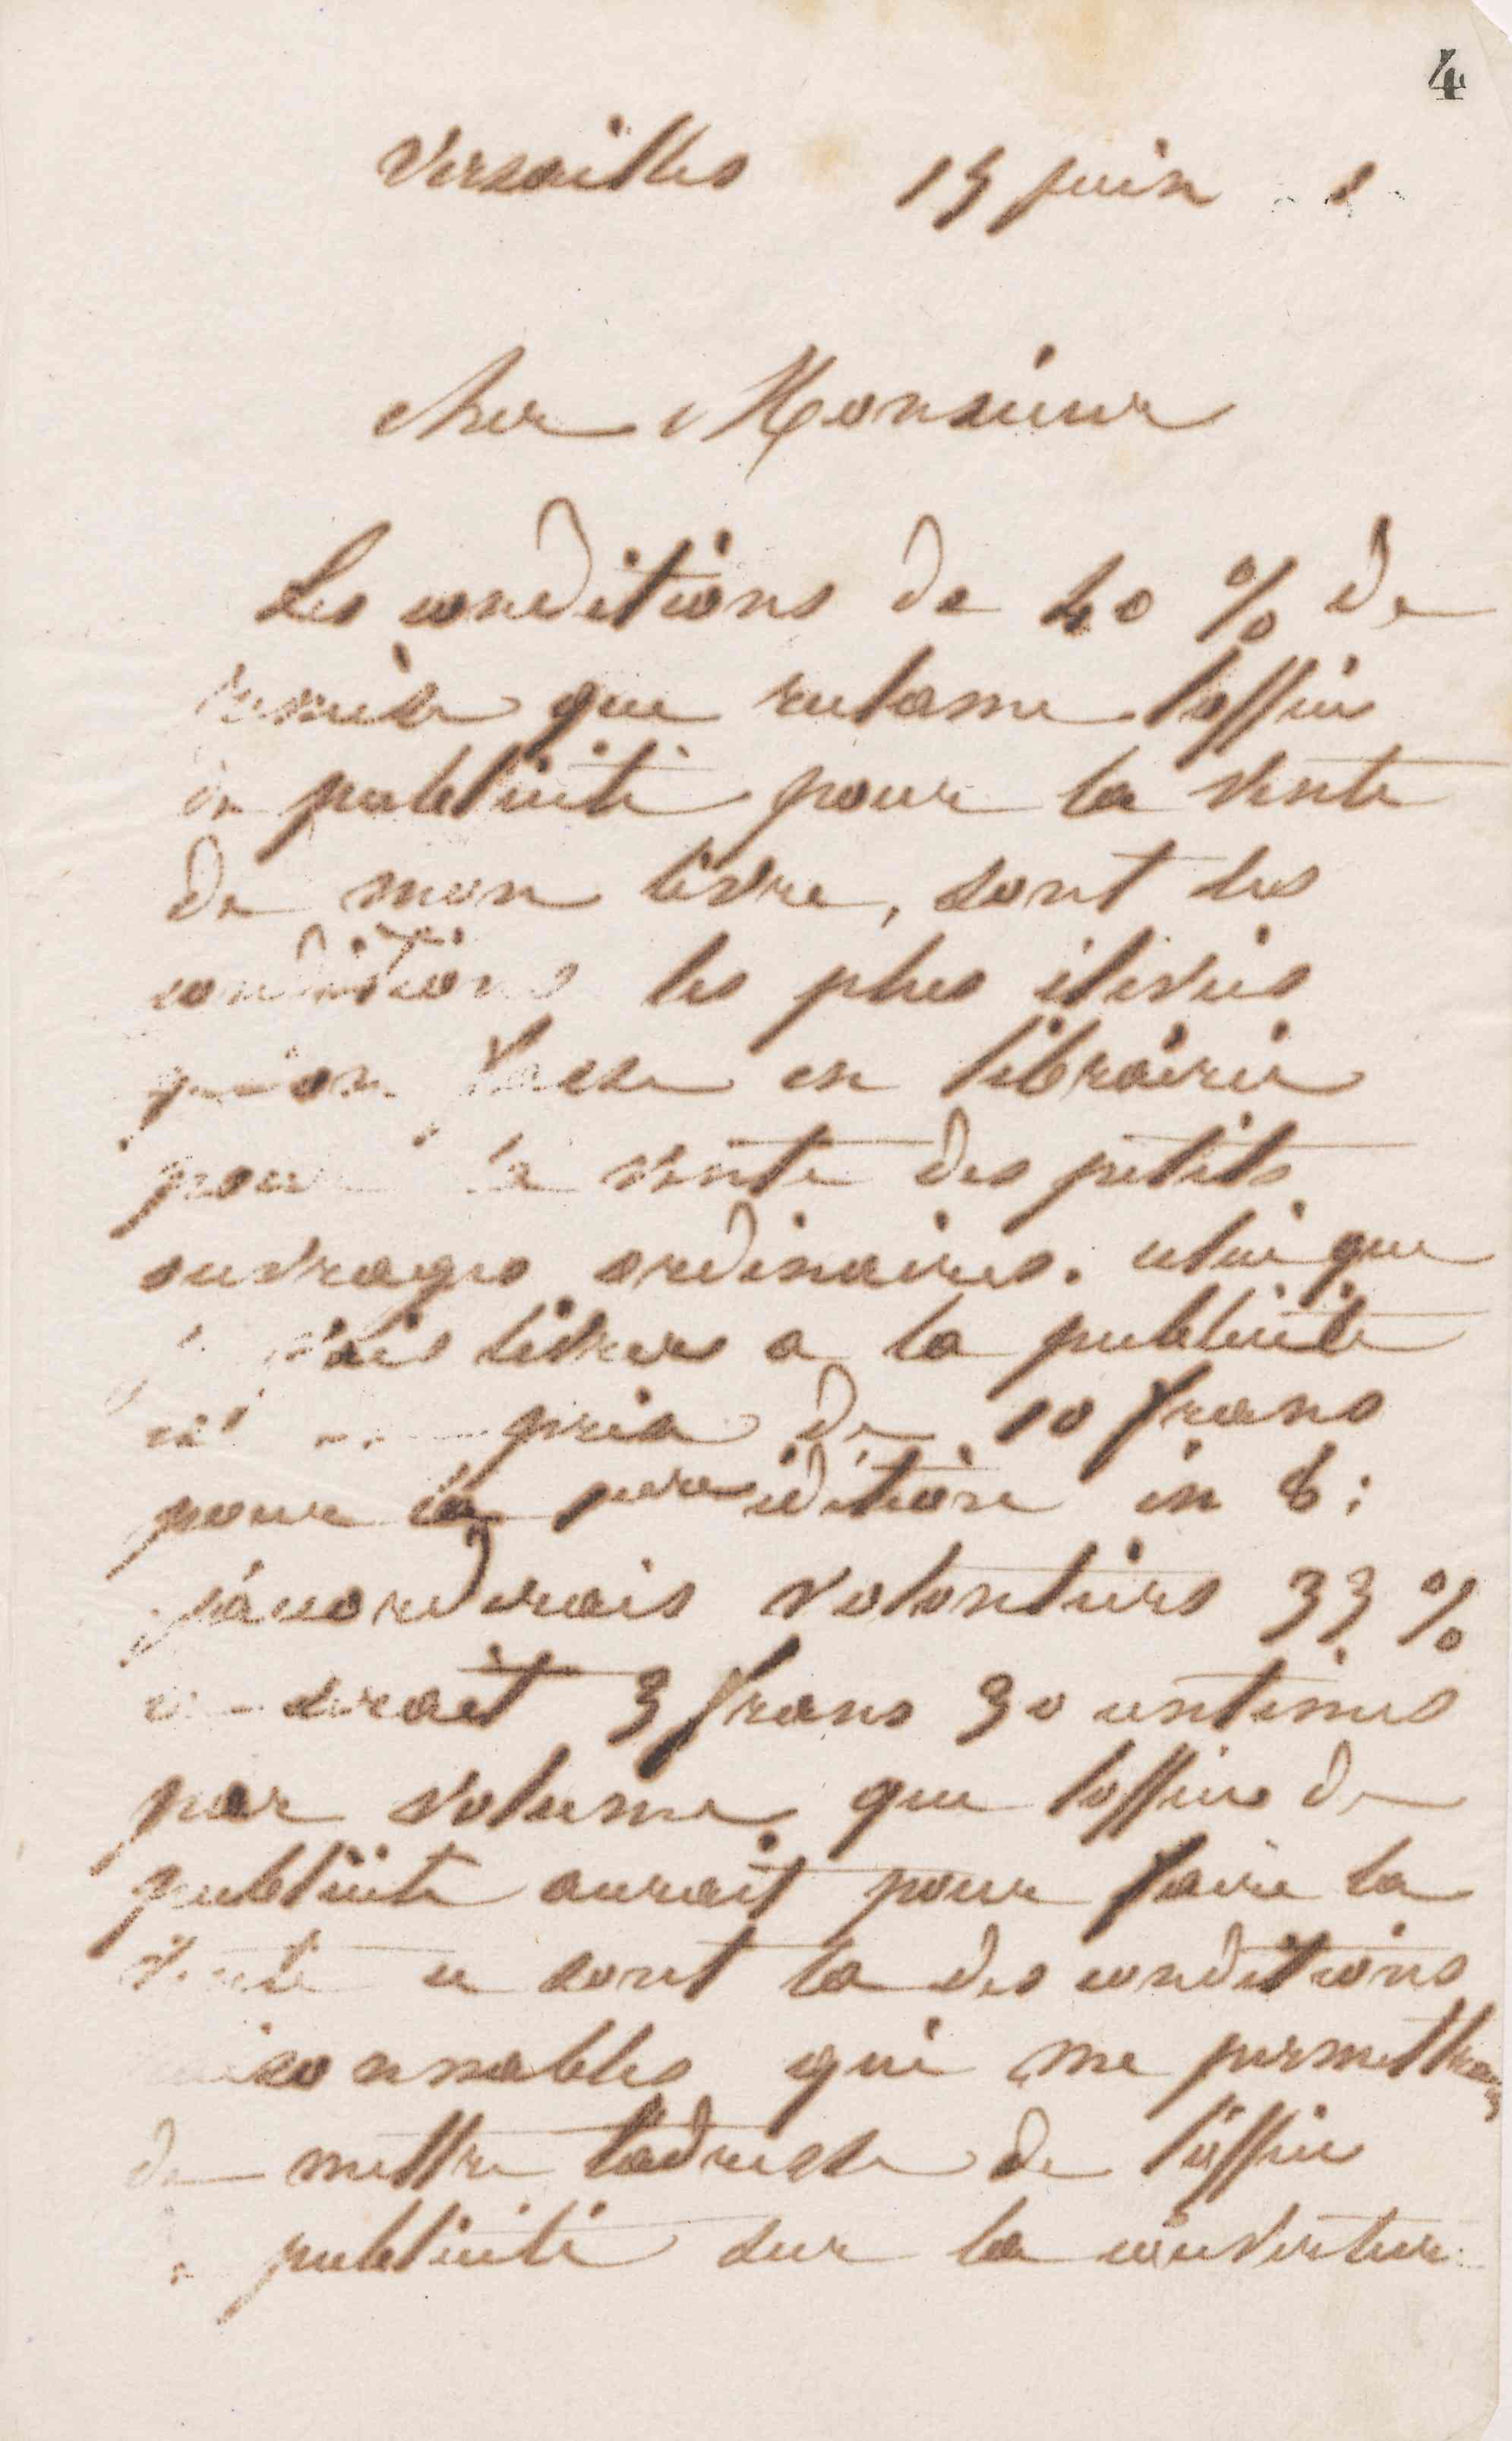 4
Versailles 15 juin
cher Monsieur
Les conditions de 40 % de
remise que reclame loffice
de publicité pour la vente
de mon livre, sont les
conditions les plus élevés
qu on fasse en librairie
pour la vente des petits
ouvrages ordinaires. celui que
je vais livrer a la publicité
est prix de 10 francs
pour la 1ere édition in 8;
j'accorderais volontiers 33 %
ce serait 3 francs 30 centimes
par volume que loffice de
publicité aurait pour faire la
vente ce sont la des conditions
raisonnables qui me permettrais
de mettre ladresse de l'office
publicité sur la couverture